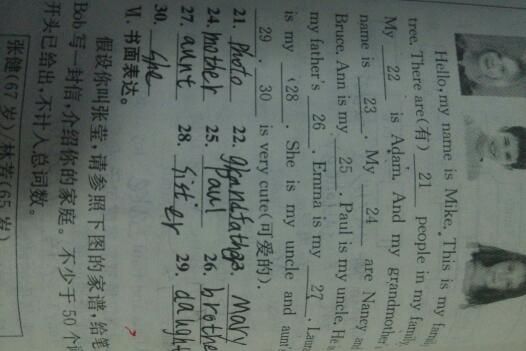 Hello, my name is Mike. This is my family
tree. There are(有) 21 people in my family.
My 22 is Adam. And my grandmother's
name is 23. My 24 are Nancy and
Bruce. Ann is my 25. Paul is my uncle. He is
my father's 26. Emma is my 27. Laura
is my 28. She is my uncle and aunt's
29. 30 is very cute(可爱的).
21. Photo 22. grandfather 23. Mary
24. mother 25. Paul 26. brothe
27. aunt 28. sister 29. daught
30. She
Ⅵ. 书面表达。
假设你叫张莹,请参照下图的家谱,给笔
Bob写一封信,介绍你的家庭。不少于50个词
开头已给出,不计入总词数。
张健(67岁)/林芳(65岁)